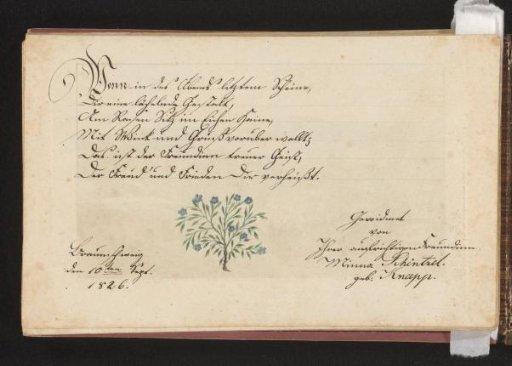 Wenn in des Abends letztem Scheine,
Dir eine lächelnde Gestalt,
Am Rasen Sitz im Eichen Haine,
Mit Wink und Gruß vorüber wallt;
Das ist der Freundinn treuer Geist,
Der Freud' und Frieden Dir verheißt.
Gewidmet
von
Ihrer aufrichtigen Freundinn
Minna
geb. Knapp.
Braunschweig
den 10ten Sept.
1826.